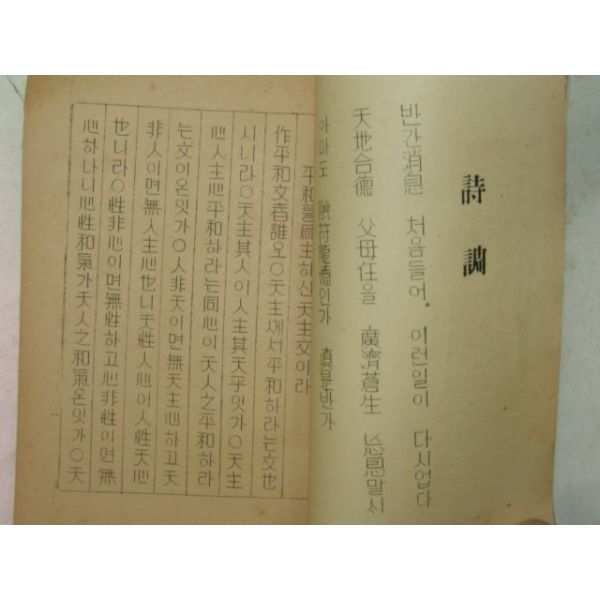 詩調
반간消息 처음들어 이런일이 다시업다
天地合德 父母任을 廣濟蒼生 心思말시
아마도 陰符龍德인가 眞是반가
平和를爲主하신天主文이라
作平和文者誰오〇天主에서平和하라는文也
시니라〇天主其人이人主其天乎잇가〇天主
心人主心平和하라는同心이天人之平和하라
는文이온잇가〇人非天이면無天主心하고天
非人이면無人主心也니天性人心이人性天心
也니라〇性非心이면無性하고心非性이면無
心하나니心性和氣가天人之和氣온잇가〇天